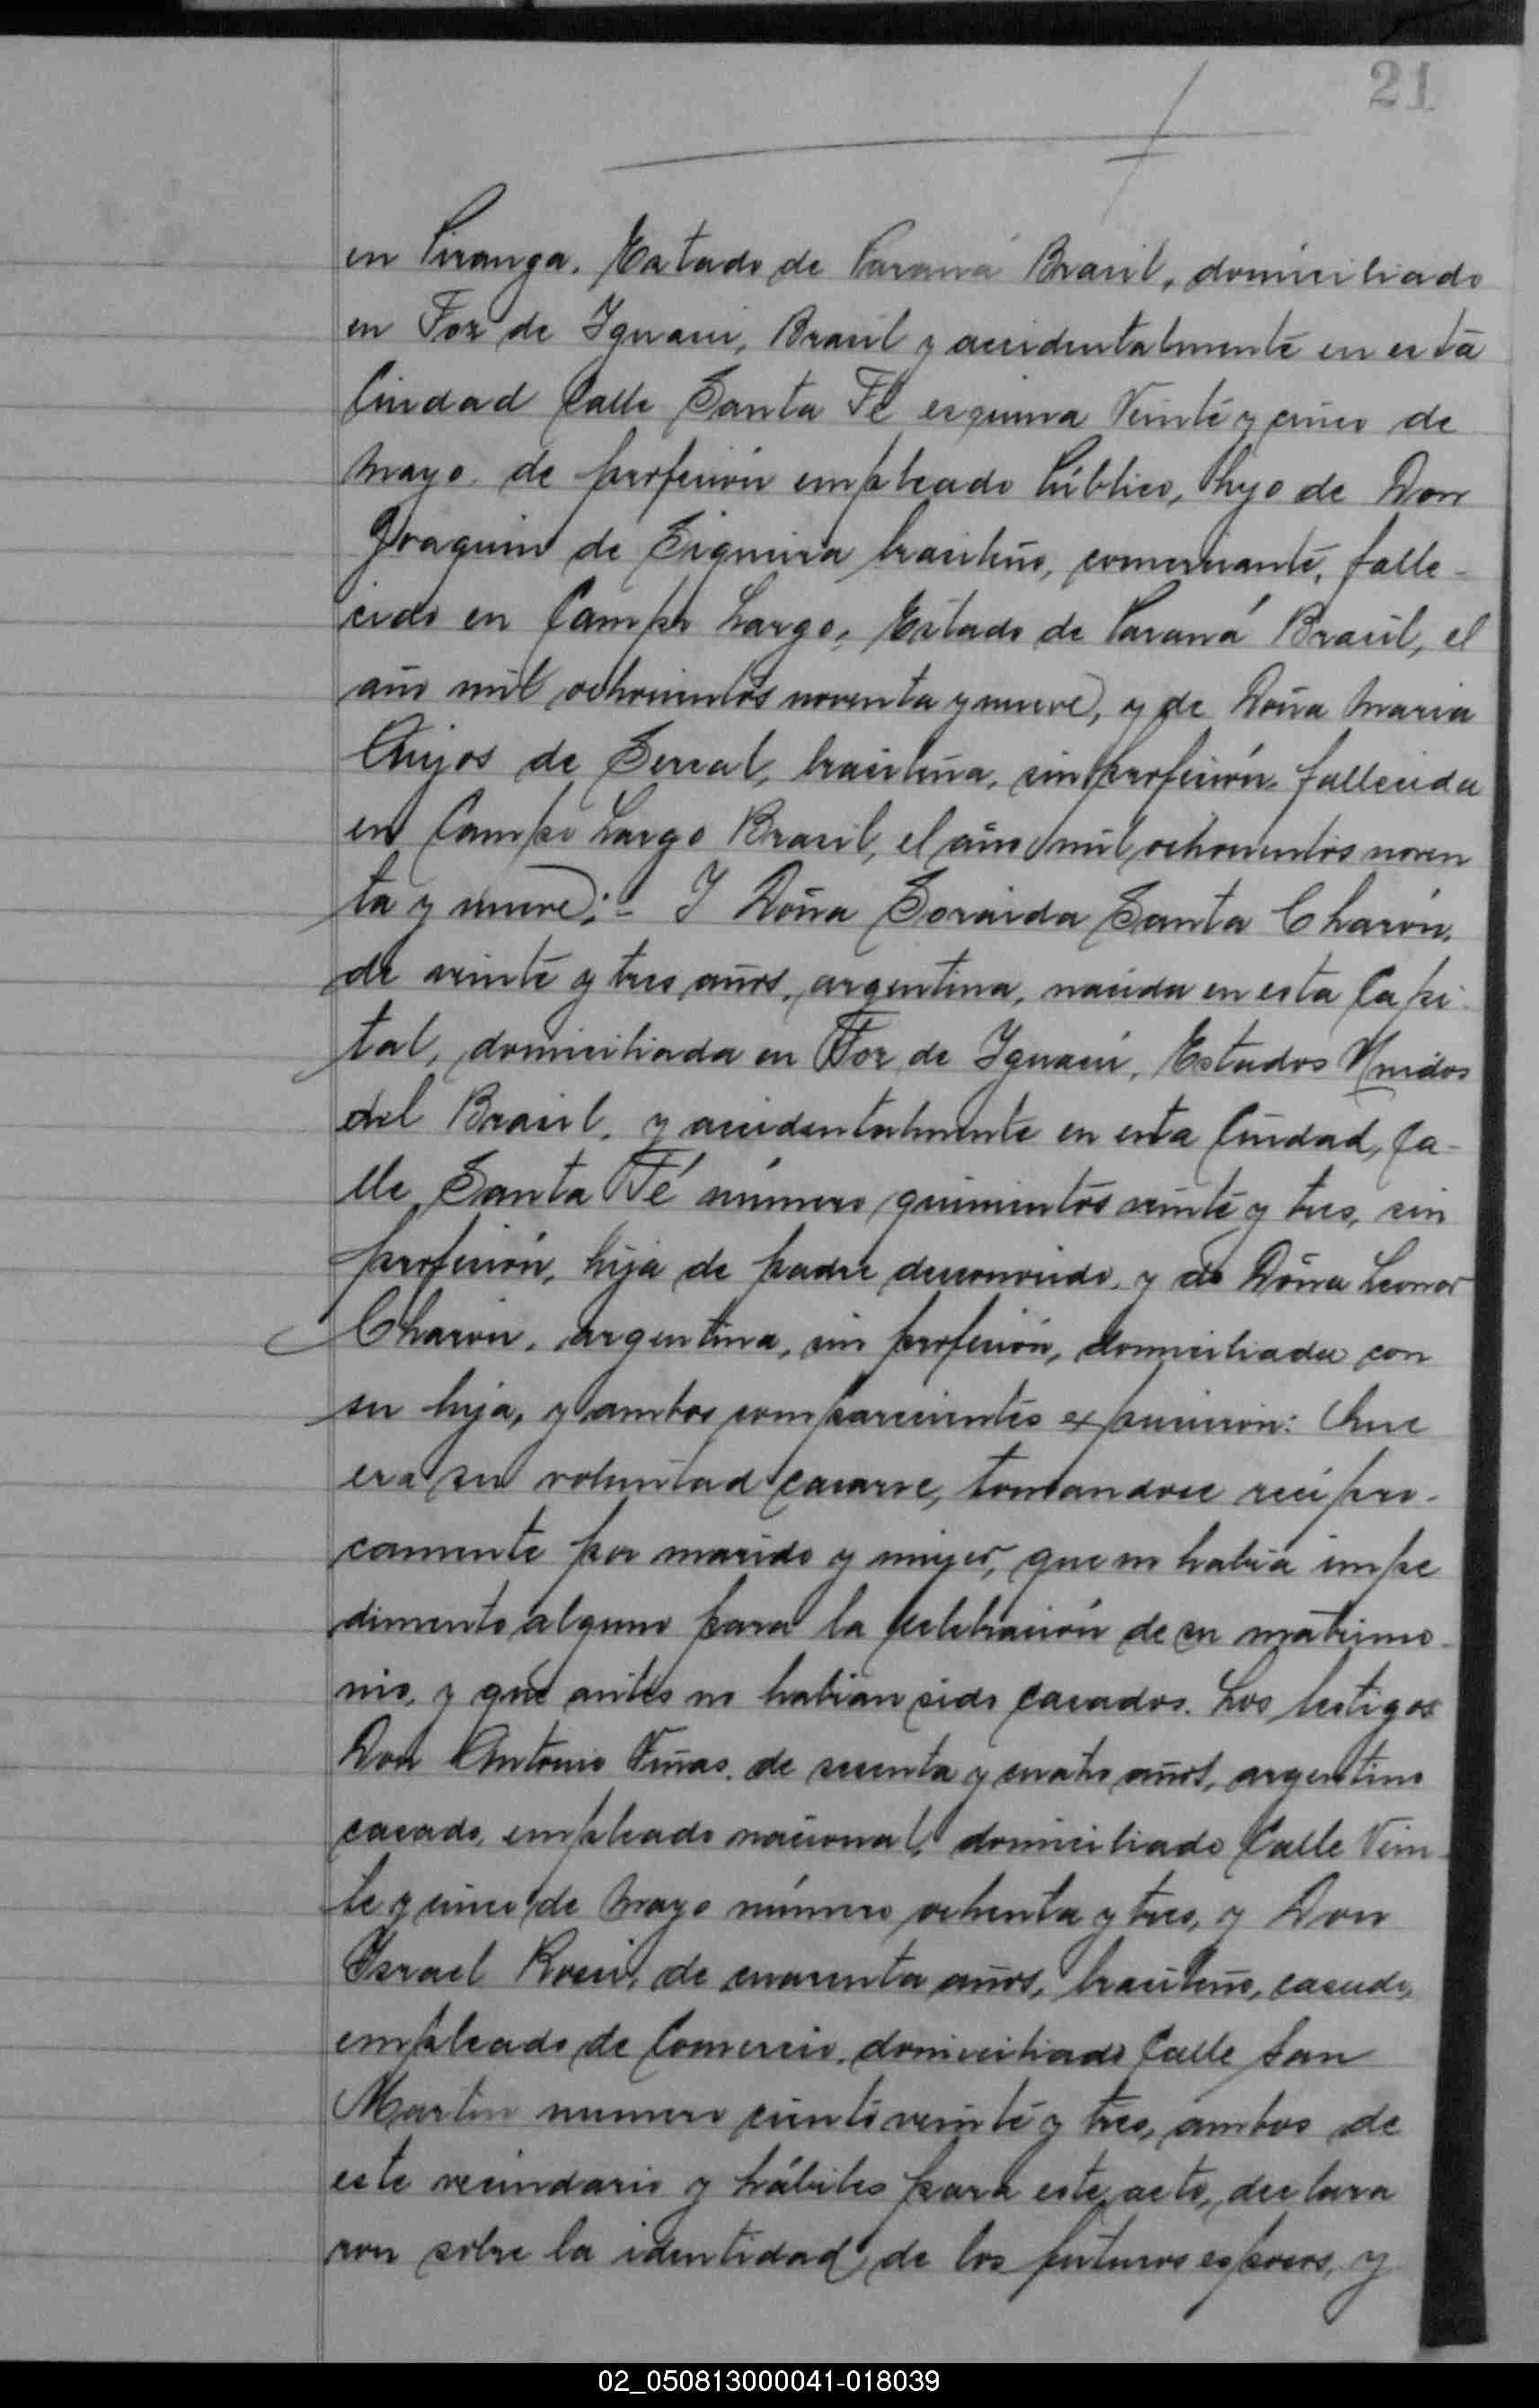 21
en Piranga. Estado de Paraná Brasil, domiciliado
en Foz de Iguasú, Brasil y accidentalmente en esta
Ciudad Calle Santa Fé esquina Veinte y cinco de
Mayo. de profesión empleado Público, hijo de Don
Joaquin de Siqueira brasileño, comerciante, falle-
cido en Campo Largo, Estado de Paraná Brasil, el
año mil ochocientos noventa y nueve, y de Doña Maria
de brasileña, sin profesión, fallecida
en Campo Largo Brasil, el año mil ochocientos noven
ta y nueve:- Y Doña Soraida Santa Charón,
de veinte y tres años, argentina, nacida en esta Capi-
tal, domiciliada en Foz de Iguasú, Estados Unidos
del Brasil, y accidentalmente en esta Ciudad, Ca-
lle Santa Fé número quinientos veinte y tres, sin
profesión, hija de padre desconocido, y de Doña Leonor
Charón, argentina, sin profesión, domiciliada con
su hija, y ambos comparecientes expusieron: Que
era su voluntad casarse, tomandose recipro-
camente por marido y mujer, que no habia impe
dimento alguno para la celebración de su matrimo-
nio, y que antes no habian sido casados. Los testigos
Don Antonio Viñas, de sesenta y cuatro años, argentino
casado, empleado nacional, domiciliado Calle Vein-
te y cinco de Mayo número ochenta y tres, y Don
Israel de cuarenta años, brasileño, casado,
empleado de Comercio, domiciliado Calle San
Martin numero ciento veinte y tres, ambos de
este vecindario y hábiles para este acto, declara
ron sobre la identidad de los futuros esposos, y
02_050813000041-018039